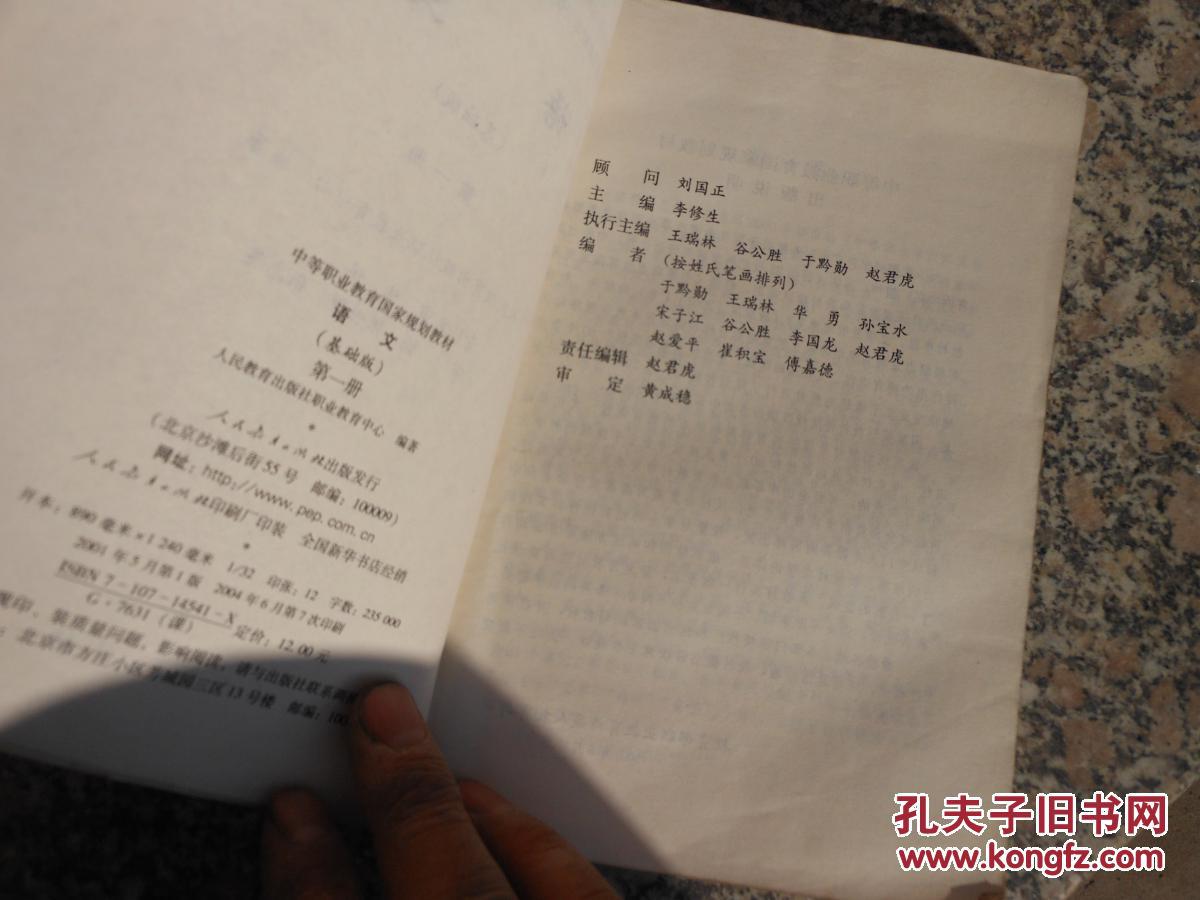 中等职业教育国家规划教材
语 文
(基础版)
第一册
人民教育出版社职业教育中心 编著
*
人民教育出版社出版发行
(北京沙滩后街55号 邮编:100009)
网址:http://www.pep.com.cn
人民教育出版社印刷厂印装 全国新华书店经销
*
开本:890毫米×1 240毫米 1/32 印张:12 字数:235 000
2001年5月第1版 2004年6月第7次印刷
ISBN 7-107-14541-X
G·7631(课) 定价:12.00元
印、装质量问题,影响阅读,请与出版社联系调
:北京市方庄小区芳城园三区13号楼 邮编:100
顾 问 刘国正
主 编 李修生
执行主编 王瑞林 谷公胜 于黔勋 赵君虎
编 者 (按姓氏笔画排列)
于黔勋 王瑞林 华 勇 孙宝水
宋子江 谷公胜 李国龙 赵君虎
赵爱平 崔积宝 傅嘉德
责任编辑 赵君虎
审 定 黄成稳
孔夫子旧书网
www.kongfz.com